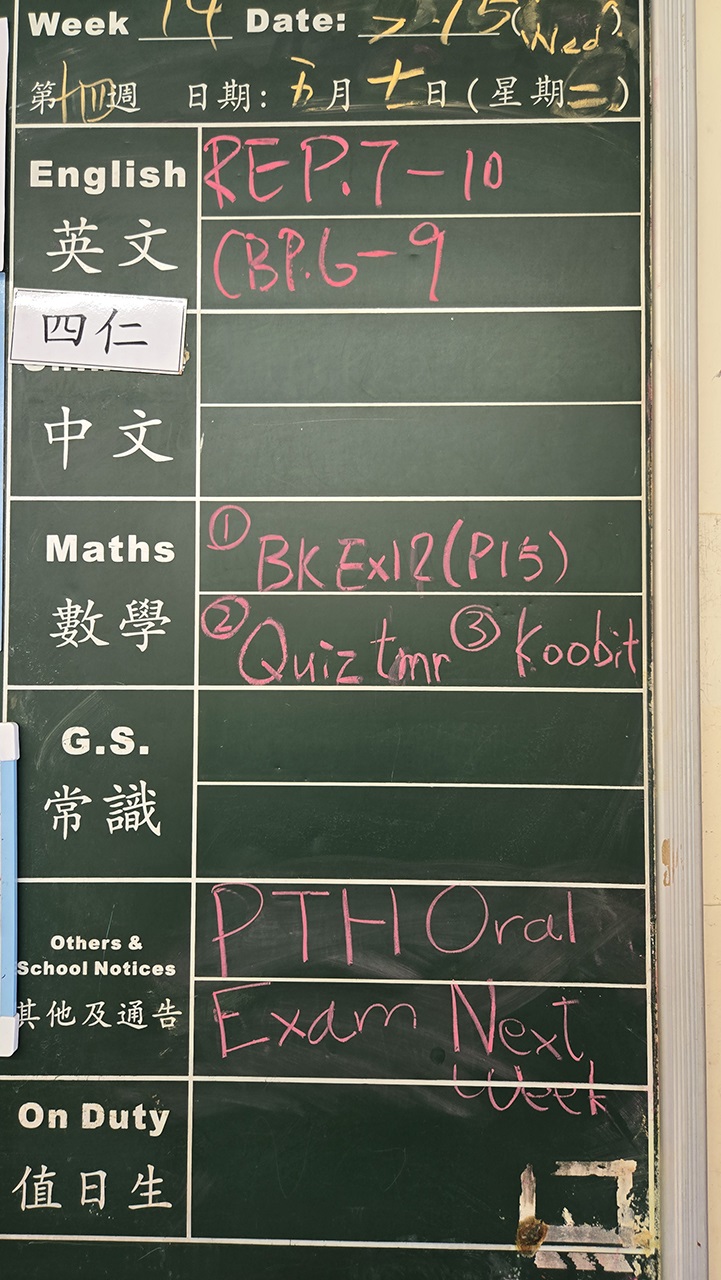 Week 14 Date: 15 (Wed)
第十四週 日期: 五月十 日 (星期二)
English REP.7-10
英文 CBP.6-9
四仁
中文
Maths ① BK Ex12 (P15)
數學 ② Quiz tmr ③ Koobit
G.S.
常識
Others & PTH Oral
School Notices
其他及通告 Exam Next
Week
On Duty
值日生